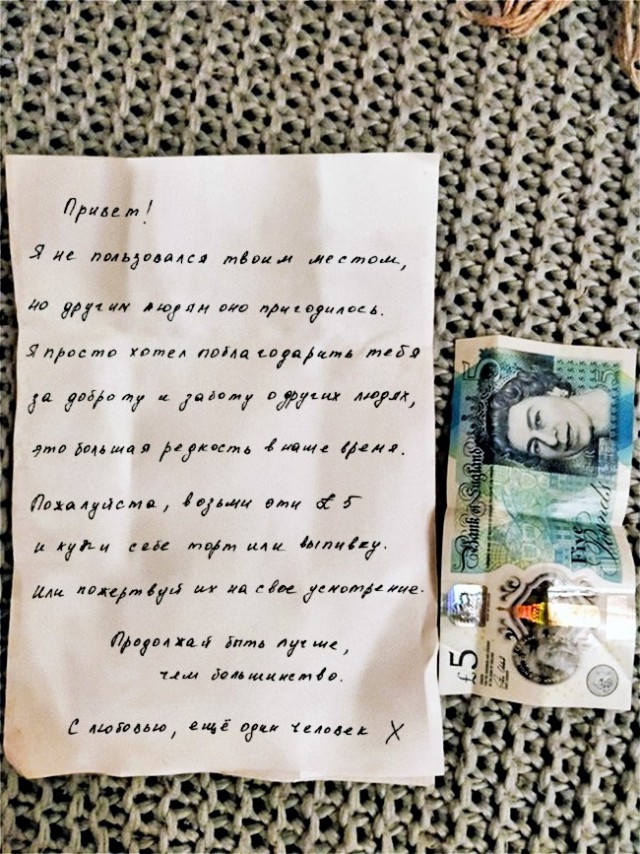 Привет!
Я не пользовался твоим местом,
но другим людям оно пригодилось.
Я просто хотел поблагодарить тебя
за доброту и заботу о других людях,
это большая редкость в наше время.
Пожалуйста, возьми эти £5
и купи себе торт или выпивку.
Или пожертвуй их на свое усмотрение.
Продолжай быть лучше,
чем большинство.
С любовью, ещё один человек X
5
Bank of England
Five
Pounds
£5